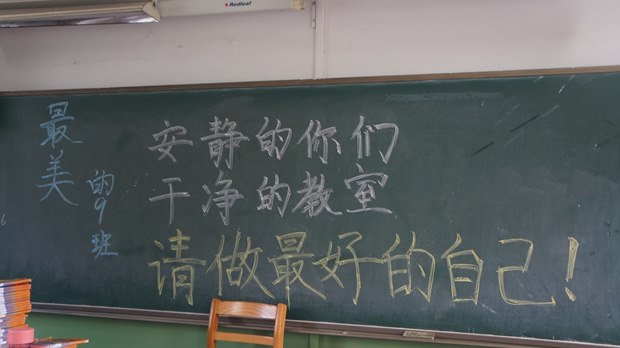 Redleaf
最美
的9班
安静的你们
干净的教室
请做最好的自己!